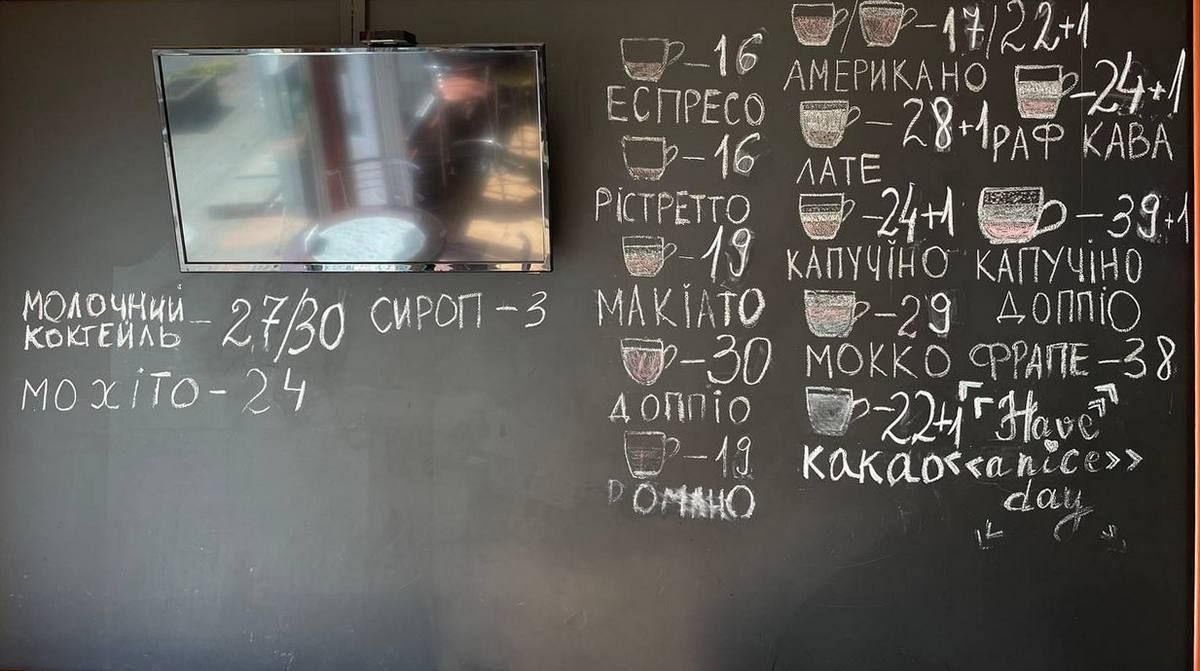 МОЛОЧНИЙ
КОКТЕЙЛЬ – 27/30
СИРОП – 3
МОХІТО – 24
– 16
ЕСПРЕСО
– 16
РІСТРЕТТО
– 19
МАКІАТО
– 30
ДОППІО
– 19
РОМАНО
/ – 17/22+1
АМЕРИКАНО
– 28+1
ЛАТЕ
– 24+1
КАПУЧЇНО
– 29
МОККО
– 22+1
КАКАО
– 24+1
РАФ КАВА
– 39+1
КАПУЧІНО
ДОППІО
ФРАПЕ – 38
Have
<<a nice>>
day